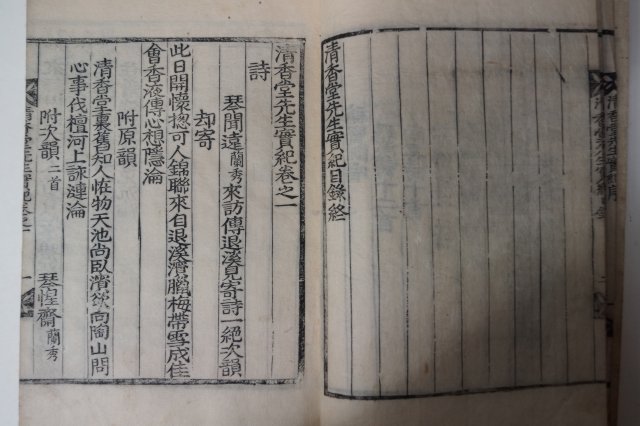 清香堂先生實紀目錄終
清香堂先生實紀卷之一
詩
琴聞遠蘭秀來訪傳退溪見寄詩一絶次韻
却寄
此日開懷摠可人錦聯來自退溪濱臘梅帶雪成佳
會香液傳心想隱淪
附原韻
清香堂裏舊知人恠物天池尚臥濱欲向陶山問
心事伐檀河上詠漣淪
附次韻二首
琴惺齋蘭秀